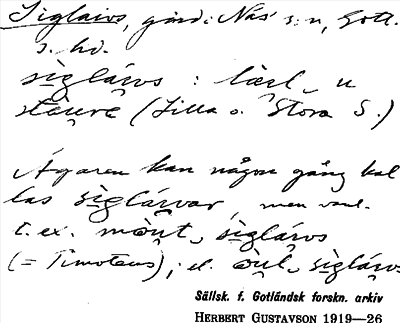 Siglaivs, gård i Näs s:n, Gotl.
s. hd.
sìgláivs : lìtl_ u
stàure (Lilla o. Stora S.)
Ägaren kan någon gång kal
las sìgláivar, men vanl.
t. ex. mòut_ sìgláivs
(= Timoteus); el. òul_ sìgláivs
Sällsk. f. Gotländsk forskn. arkiv
HERBERT GUSTAVSON 1919—26